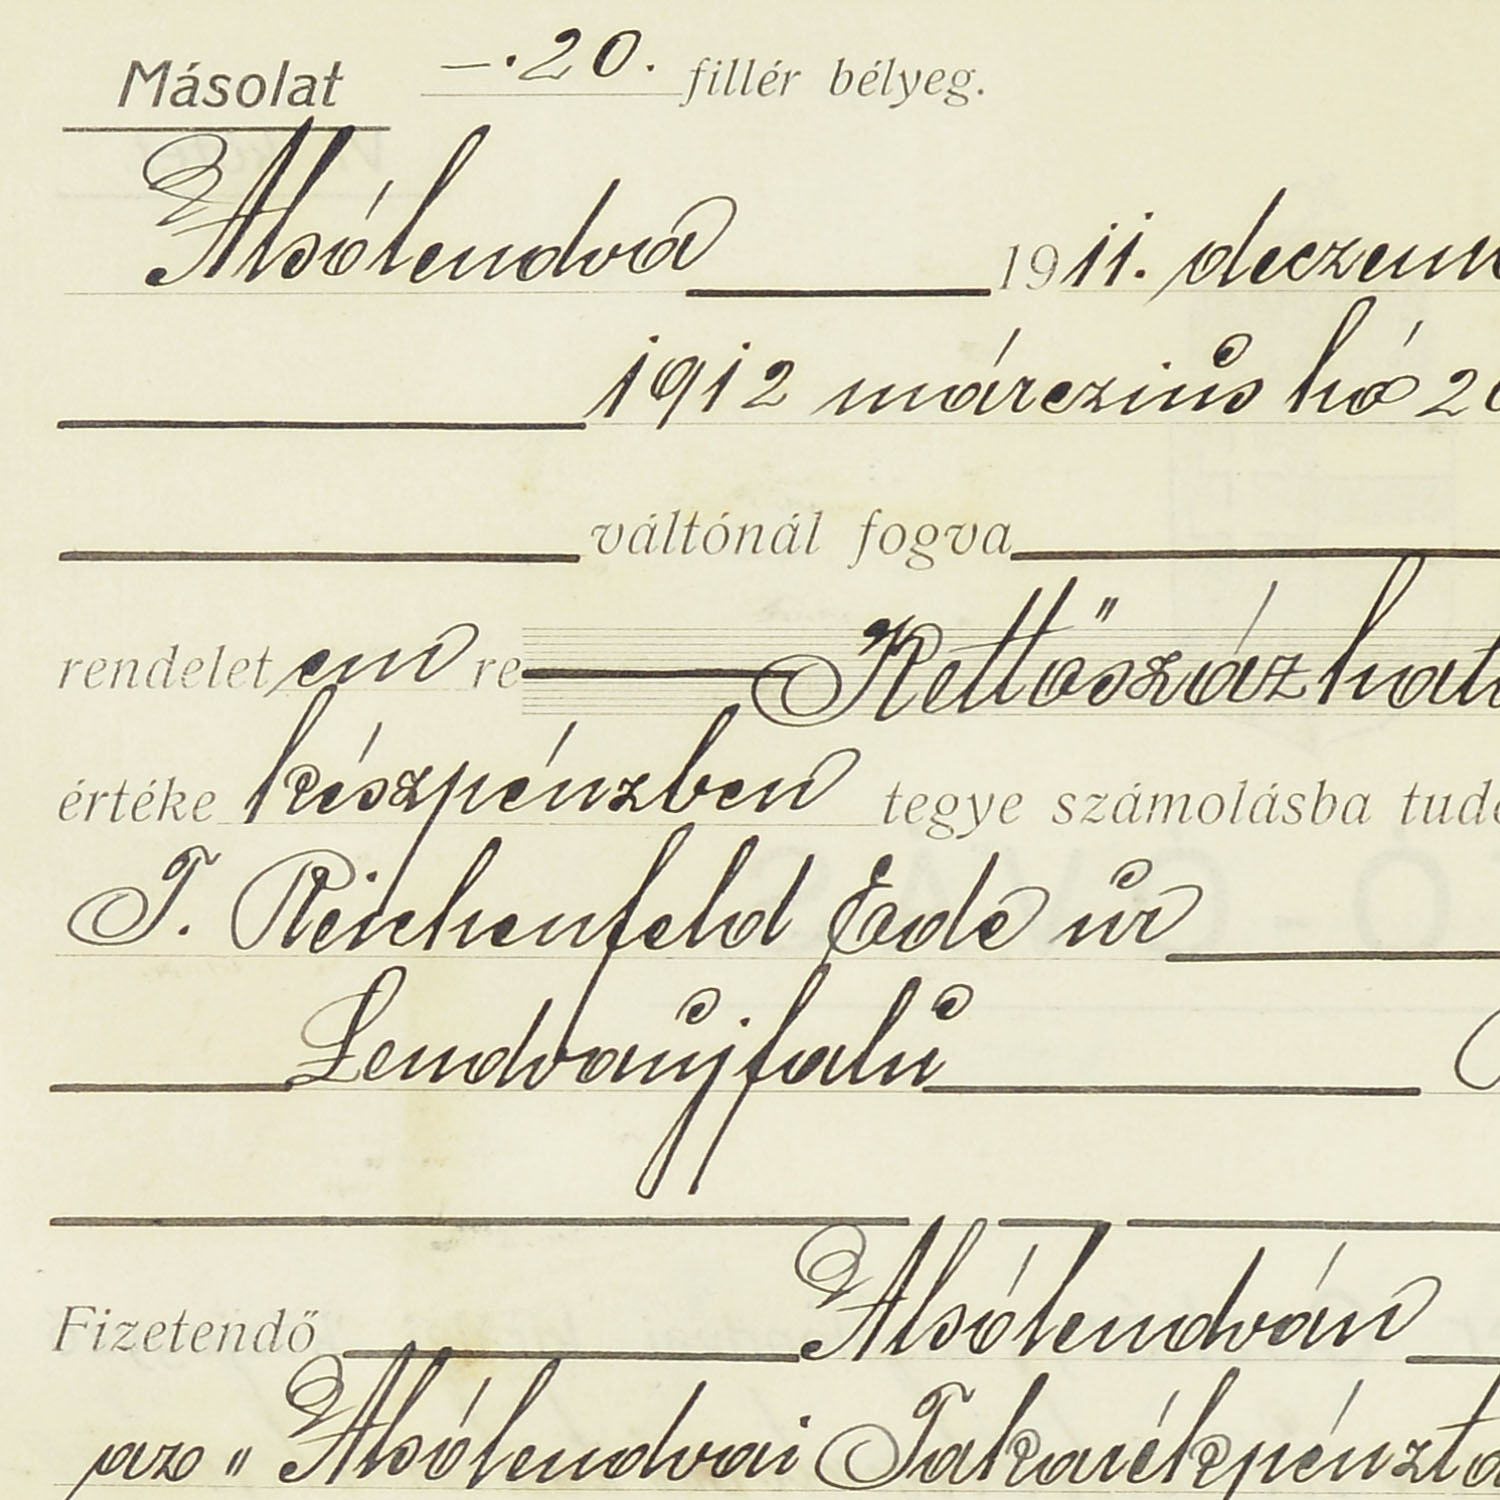 Másolat —·20. fillér bélyeg.
Alsólendva 1911. deczem
1912 márczius hó 20
váltónál fogva
rendelet em re Kettőszázhat
értéke készpénzben tegye számolásba tud
T. Reichenfeld Ede úr
Lendvaújfalu
Fizetendő Alsólendván
az „Alsólendvai Takarékpénztá